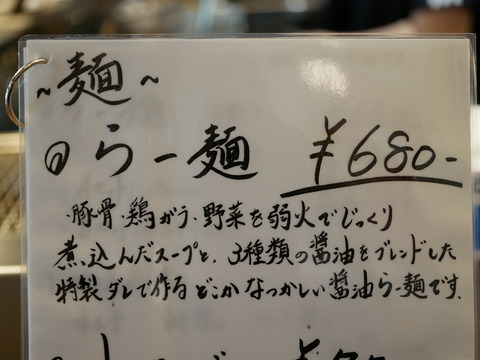 ~麺~
の らー麺 ¥680-
・豚骨・鶏ガラ・野菜を弱火でじっくり
煮込んだスープと、3種類の醤油をブレンドした
特製ダレで作るどこかなつかしい醤油らー麺です。